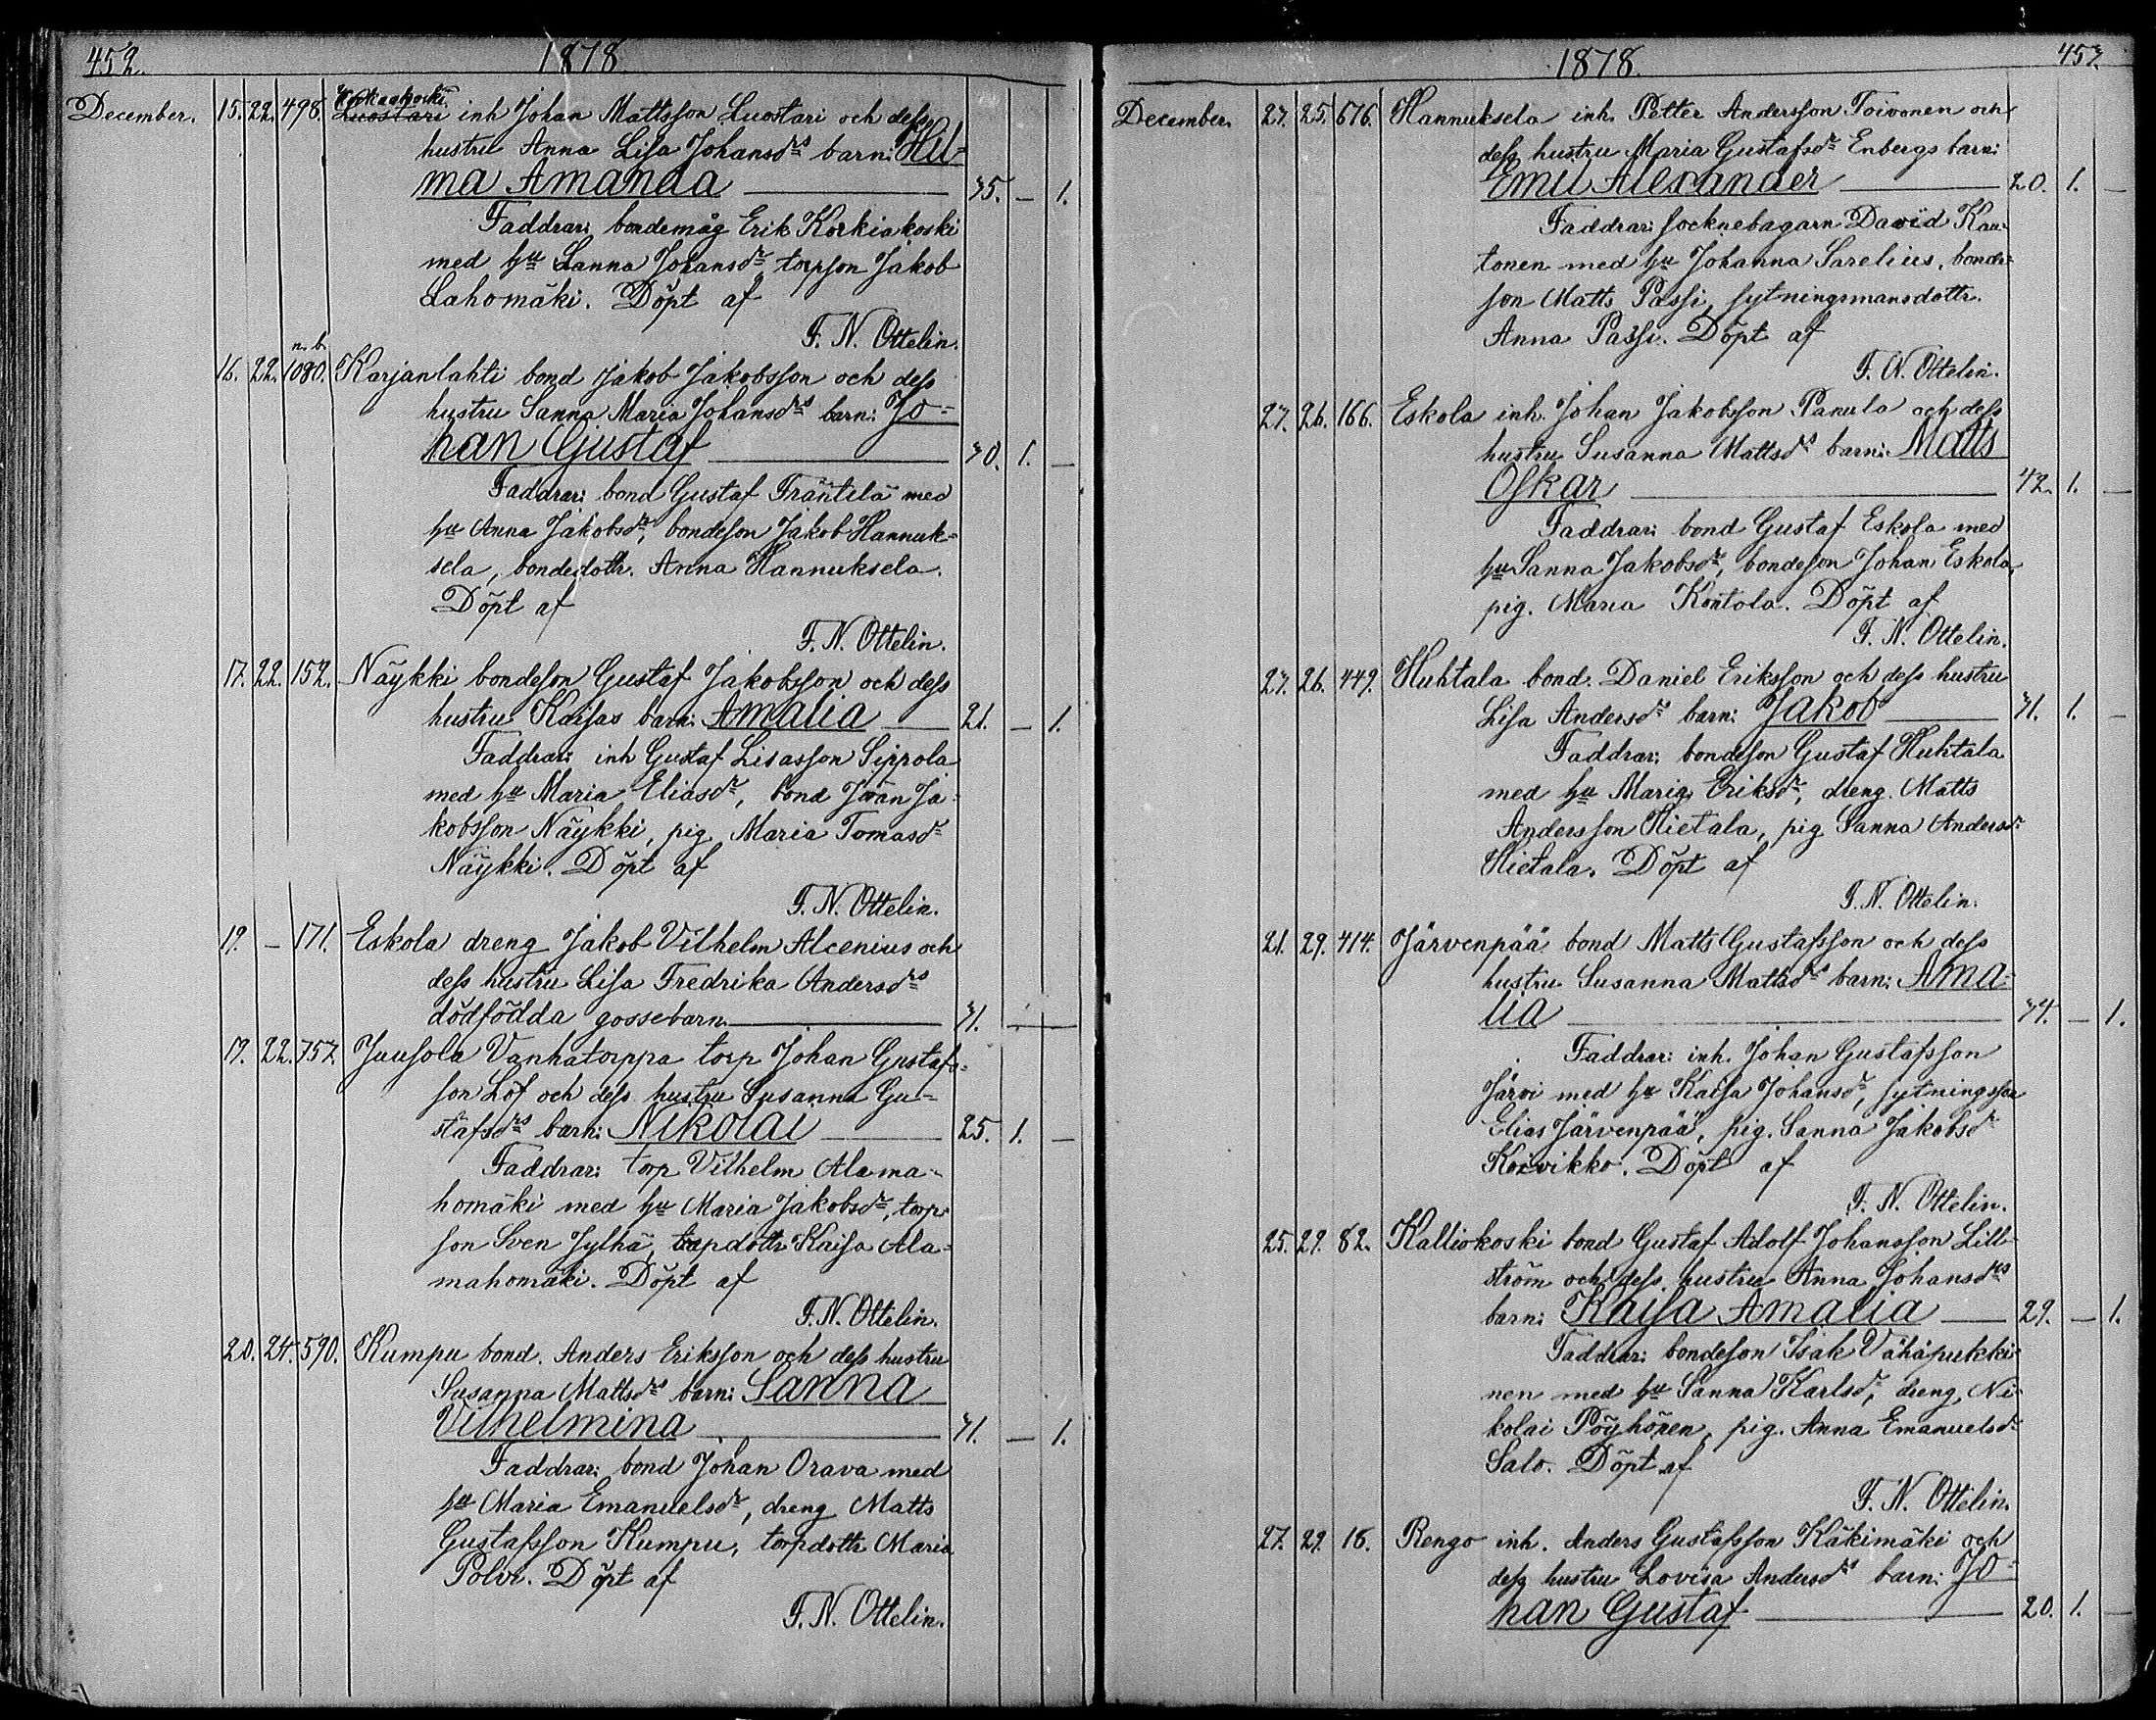 452.
1878
December. 15. 22. 498. Korkiakoski
Luostari inh Johan Mattsson Luostari och dess
hustru Anna Lisa Johansdrs barn: Hil=
ma Amanda 35. — 1.
Faddrar: bondemåg Erik Korkiakoski
med hu Sanna Johansdr torpson Jakob
Lahomäki. Döpt af
F. N. Ottelin.
n. b.
16. 22. 1080. Karjanlahti bond Jakob Jakobsson och dess
hustru Sanna Maria Johansdrs barn: Jo=
han Gustaf 30. 1. —
Faddrar: bond Gustaf Träntilä med
hu Anna Jakobsdr, bondeson Jakob Hannuk=
sela, bondedottr. Anna Hannuksela.
Döpt af
F. N. Ottelin.
17. 22. 152. Näykki bondeson Gustaf Jakobsson och dess
hustru Kaisas barn: Amalia 21. — 1.
Faddrar: inh Gustaf Lisasson Sippola
med hu Maria Eliasdr, bond Johan Ja=
kobsson Näykki, pig. Maria Tomasdr
Näykki. Döpt af
F. N. Ottelin.
19. — 171. Eskola dreng Jakob Vilhelm Alcenius och
dess hustru Lisa Fredrika Andersdrs
dödfödda gossebarn. 31. —
19. 22. 757. Juusola Vanhatorppa torp Johan Gustafs=
son Löf och dess hustru Susanna Gu=
stafsdrs barn: Nikolai 25. 1. —
Faddrar: torp Vilhelm Alama=
homäki med hu Maria Jakobsdr, torp=
son Sven Jylhä, torpdottr Kaisa Ala=
mahomäki. Döpt af
F. N. Ottelin.
20. 24. 590. Kumpu bond. Anders Eriksson och dess hustru
Susanna Mattsdrs barn: Sanna
Vilhelmina 31. — 1.
Faddrar: bond Johan Orava med
hu Maria Emanuelsdr, dreng Matts
Gustafsson Kumpu, torpdottr Maria
Polvi. Döpt af
F. N. Ottelin.
1878.
453.
December. 23. 25. 676. Hannuksela inh. Petter Andersson Toivonen och
dess hustru Maria Gustafsdr Enbergs barn:
Emil Alexander 20. 1. —
Faddrar: socknebagarn David Kau=
tonen med hu Johanna Sarelius, bonde=
son Matts Passi, sytningsmansdottr.
Anna Passi. Döpt af
F. N. Ottelin.
23. 26. 166. Eskola inh. Johan Jakobsson Panula och dess
hustru Susanna Mattsdrs barn: Matts
Oskar 42. 1. —
Faddrar: bond Gustaf Eskola med
hu Sanna Jakobsdr, bondeson Johan Eskola,
pig. Maria Kontola. Döpt af
F. N. Ottelin.
23. 26. 449. Huhtala bond. Daniel Eriksson och dess hustru
Lisa Andersdrs barn: Jakob 31. 1. —
Faddrar: bondeson Gustaf Huhtala
med hu Maria Eriksdr, dreng. Matts
Andersson Hietala, pig Sanna Andersdr
Hietala. Döpt af
F. N. Ottelin.
21. 29. 414. Järvenpää bond Matts Gustafsson och dess
hustru Susanna Mattsdrs barn: Ama=
lia 34. — 1.
Faddrar: inh. Johan Gustafsson
Järvi med hu Kaisa Johansdr, sytningsson
Elias Järvenpää, pig. Sanna Jakobsdr
Koivikko. Döpt af
F. N. Ottelin.
25. 29. 82. Kalliokoski bond Gustaf Adolf Johansson Lill=
ström och dess hustru Anna Johansdrs
barn: Kaisa Amalia 29. — 1.
Faddrar: bondeson Isak Vähäpukki=
nen med hu Sanna Karlsdr, dreng. Ni=
kolai Pöyhönen, pig. Anna Emanuelsdr
Salo. Döpt af
F. N. Ottelin.
27. 29. 16. Rengo inh. Anders Gustafsson Käkimäki och
dess hustru Lovisa Andersdrs barn: Jo=
han Gustaf 20. 1. —